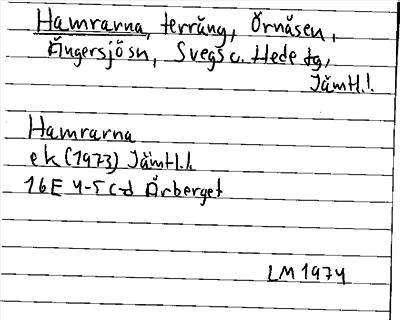 Hamrarna, terräng, Örnåsen,
Ängersjösn, Svegs o. Hede tg,
Jämtl.l.
Hamrarna
ek (1973) Jämtl.l.
16E 4-5 c-d Årberget
LM 1974